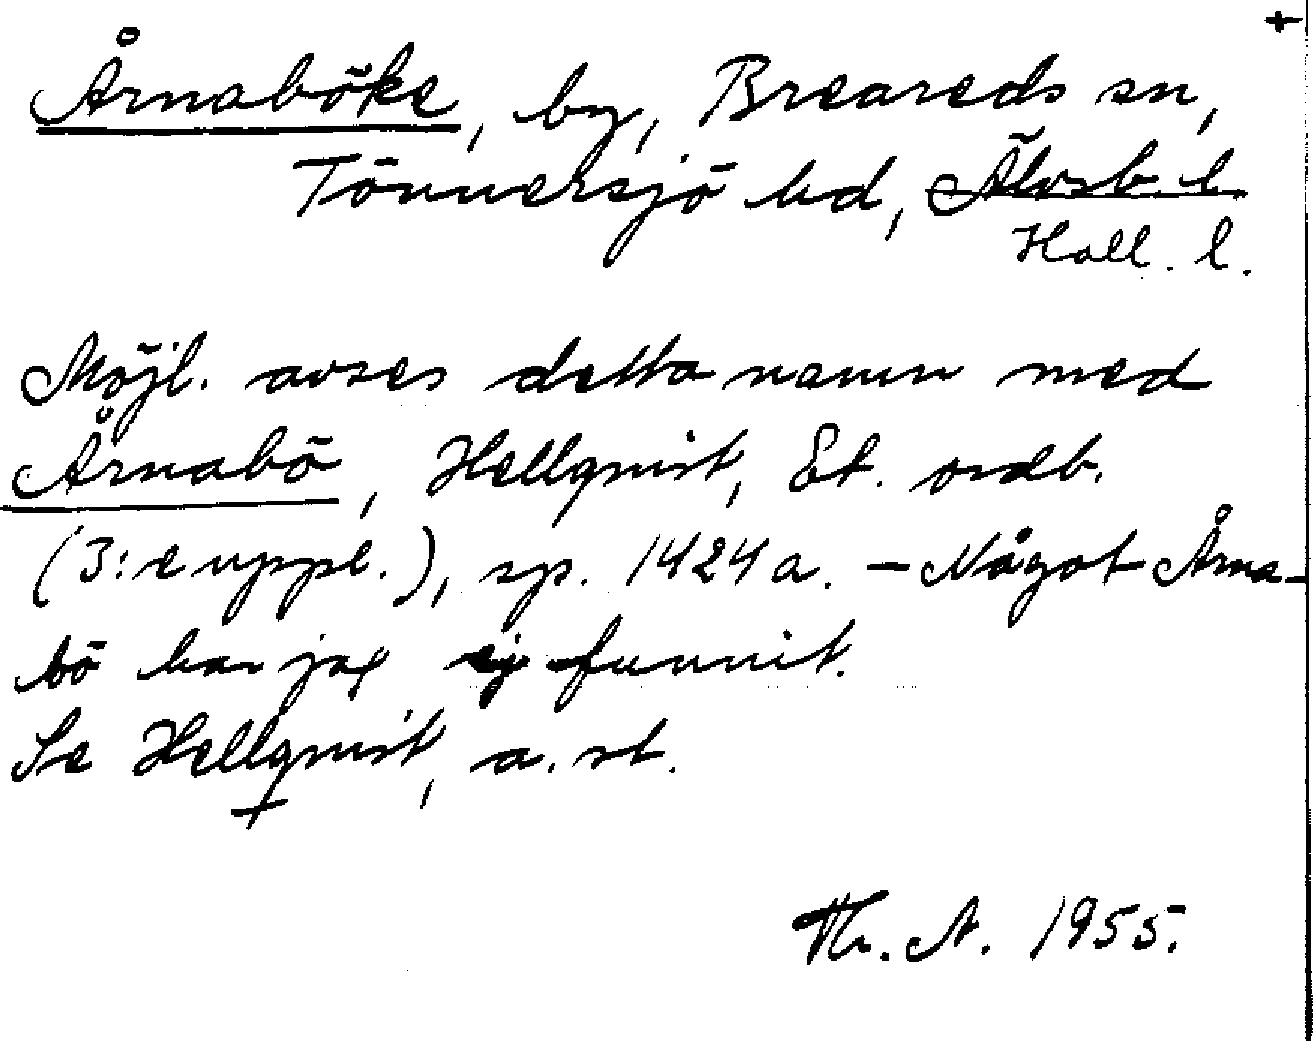 +
Årnaböke, by, Breareds sn,
Tönnersjö hd, Älvsb. l.
Hall. l.
Möjl. avses detta namn med
Årnabö, Hellqvist, Et. ordb.
(3:e uppl.), sp. 1424 a. – Något Årna-
bö har jag ej funnit.
Se Hellqvist, a. st.
+
Th. A. 1955.